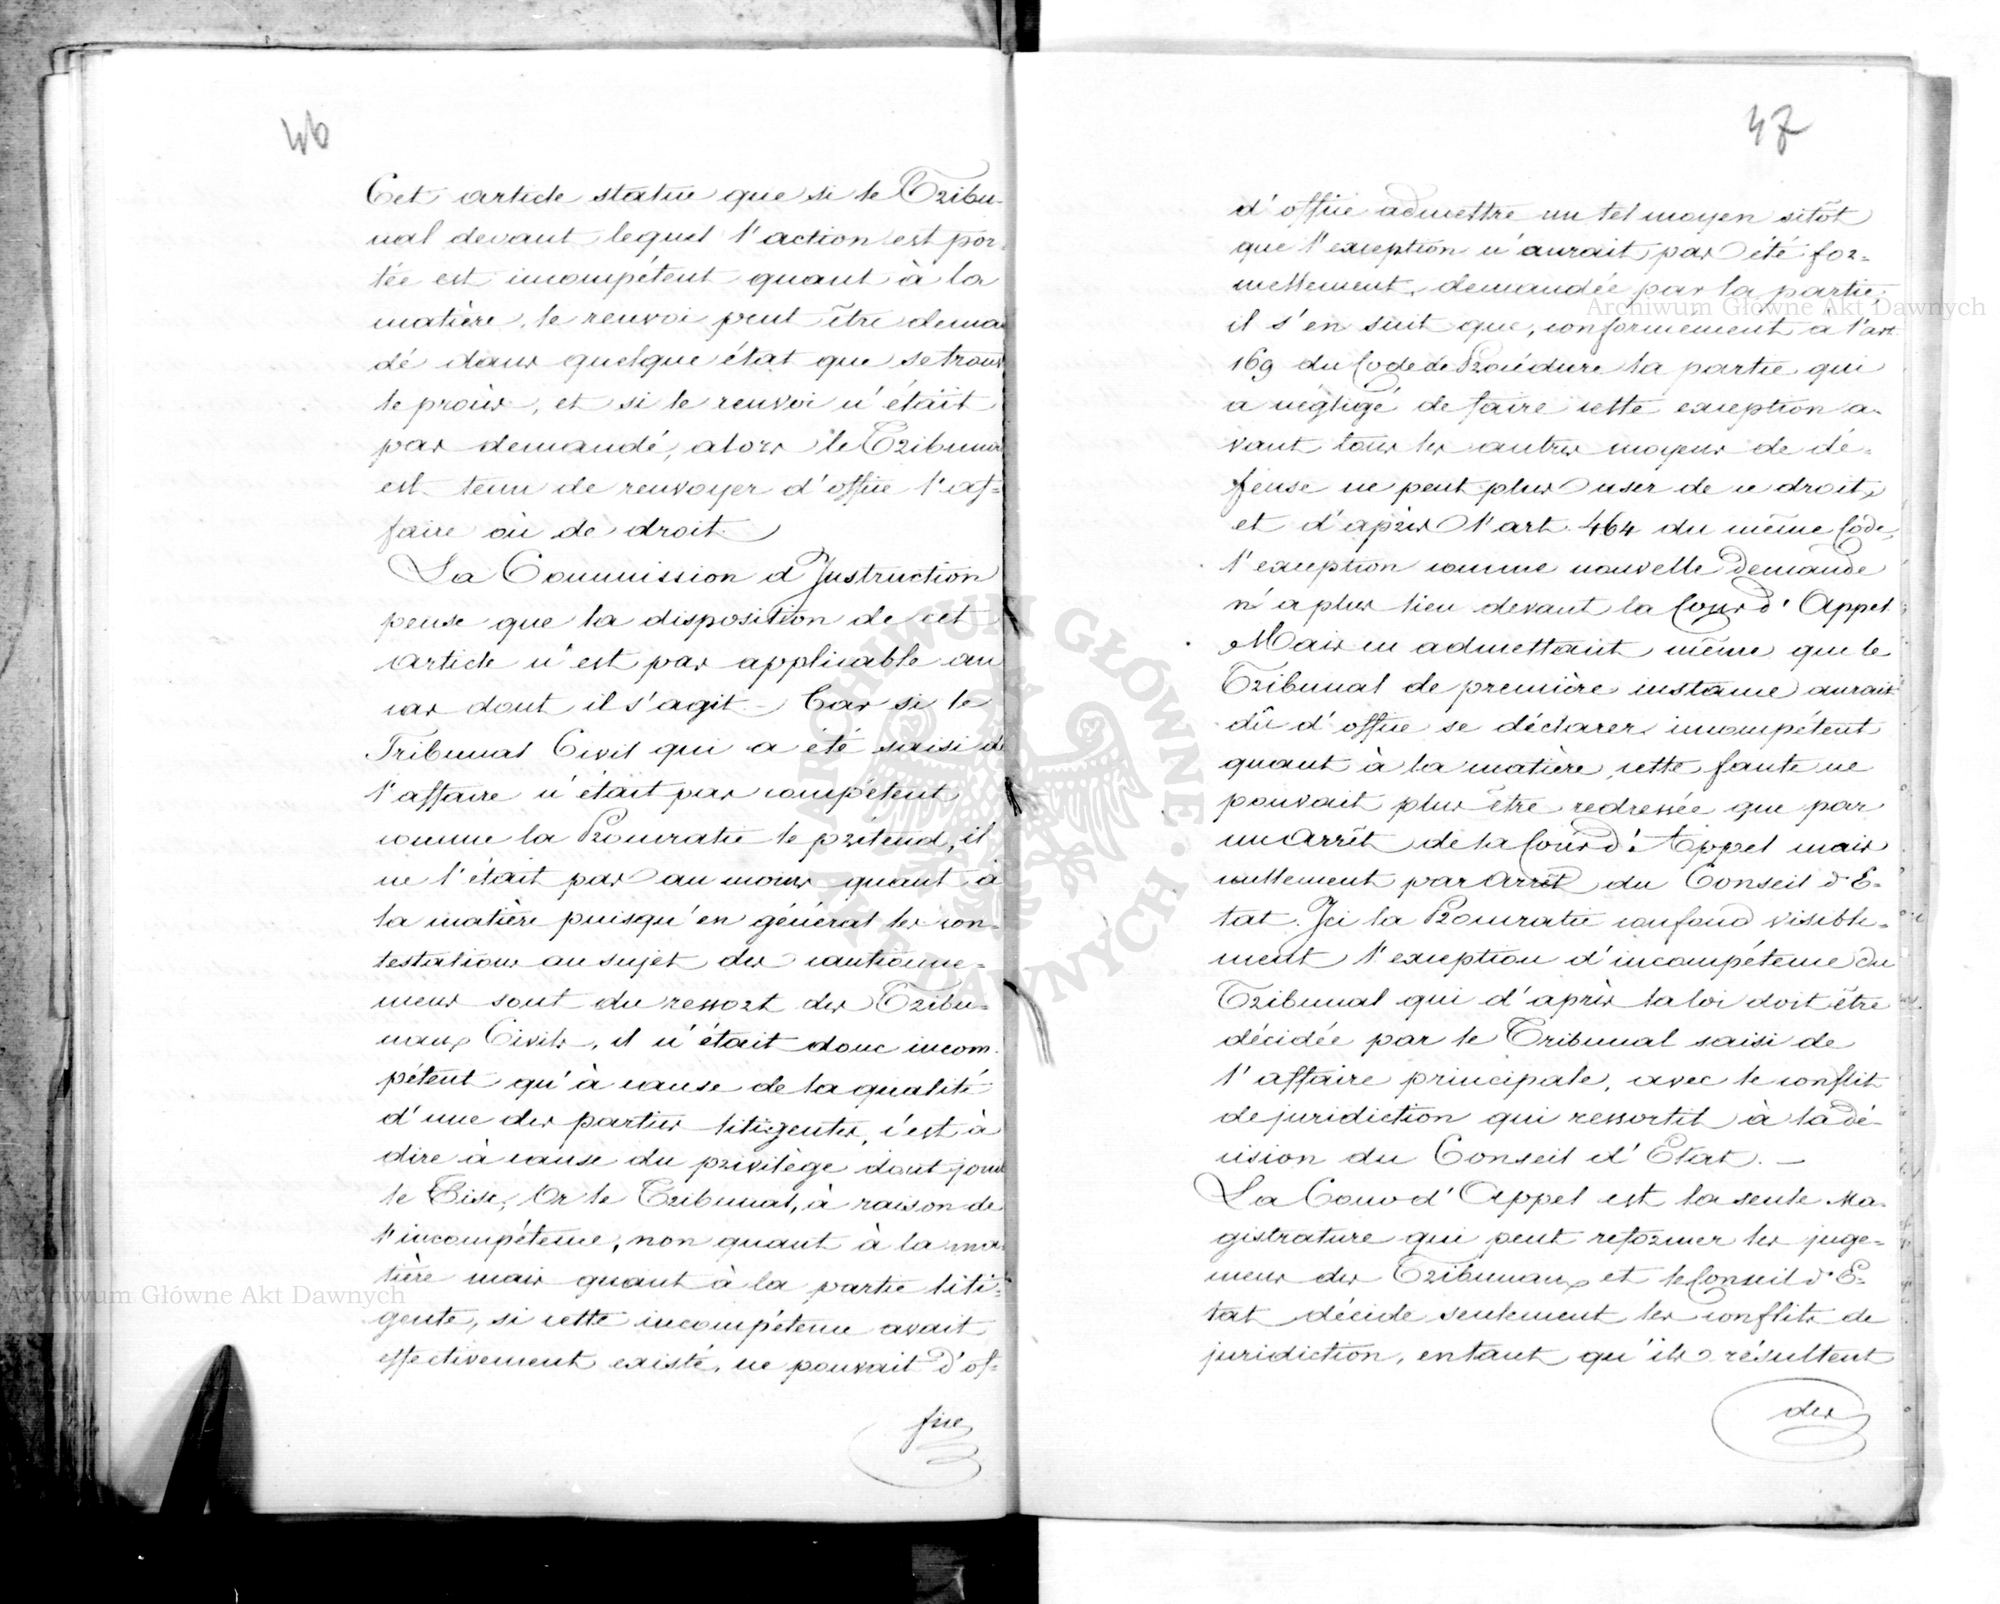 46
Cet article statue que si le Tribu-
nal devant lequel l'action est por-
tée est incompétent quant à la
matière, le renvoi peut être deman
dé dans quelque état que se trouve
le procès, et si le renvoi n'était
pas demandé, alors le Tribunal
est tenu de renvoyer d'office l'af-
faire où de droit.
La Commission d'Instruction
pense que la disposition de cet
article n'est pas applicable au
cas dont il s'agit. - Car si le
Tribunal Civil qui a été saisi de
l'affaire n'était pas compétent
comme la Procuratie le prétend, il
ne l'était pas au moins quant à
la matière puisqu'en général les con-
testations au sujet des cautionne-
mens sont du ressort des Tribu-
naux Civils, il n'était donc incom-
pétent qu'à cause de la qualité
d'une des parties litigentes, c'est à
dire à cause du privilège dont jouit
le Fisc, Or le Tribunal, à raison de
l'incompétence, non quant à la ma-
tière mais quant à la partie liti-
gente, si cette incompétence avait
effectivement existé, ne pouvait d'of-
fice
47
d'office admettre un tel moyen sitôt
que l'exception n'aurait pas été for-
mellement demandée par la partie;
il s'en suit que, conformement à l'art
169 du Code de Procédure la partie qui
a négligé de faire cette exception a-
vant tous les autres moyens de dé-
fense ne peut plus user de ce droit,
et d'après l'art. 464 du même Code,
l'exception comme nouvelle demande
n'a plus lieu devant la Cour d'Appel
Mais en admettant même que le
Tribunal de première instance aurait
dû d'office se déclarer incompétent
quant à la matière, cette faute ne
pouvait plus être redressée que par
un Arrêt de la Cour d'Appel mais
nullement par Arrêt du Conseil d'E-
tat. Ici la Procuratie confond visible-
ment l'exception d'incompétence du
Tribunal qui d'après la loi doit être
décidée par le Tribunal saisi de
l'affaire principale, avec le conflit
de juridiction qui ressortit à la dé-
cision du Conseil d'Etat. -
La Cour d'Appel est la seule Ma-
gistrature qui peut reformer les juge-
mens des Tribunaux et le Conseil d'E-
tat décide seulement les conflits de
juridiction, entant qu'ils résultent
des
Archiwum Główne Akt Dawnych
Archiwum Główne Akt Dawnych
ARCHIWUM GŁÓWNE AKT DAWNYCH